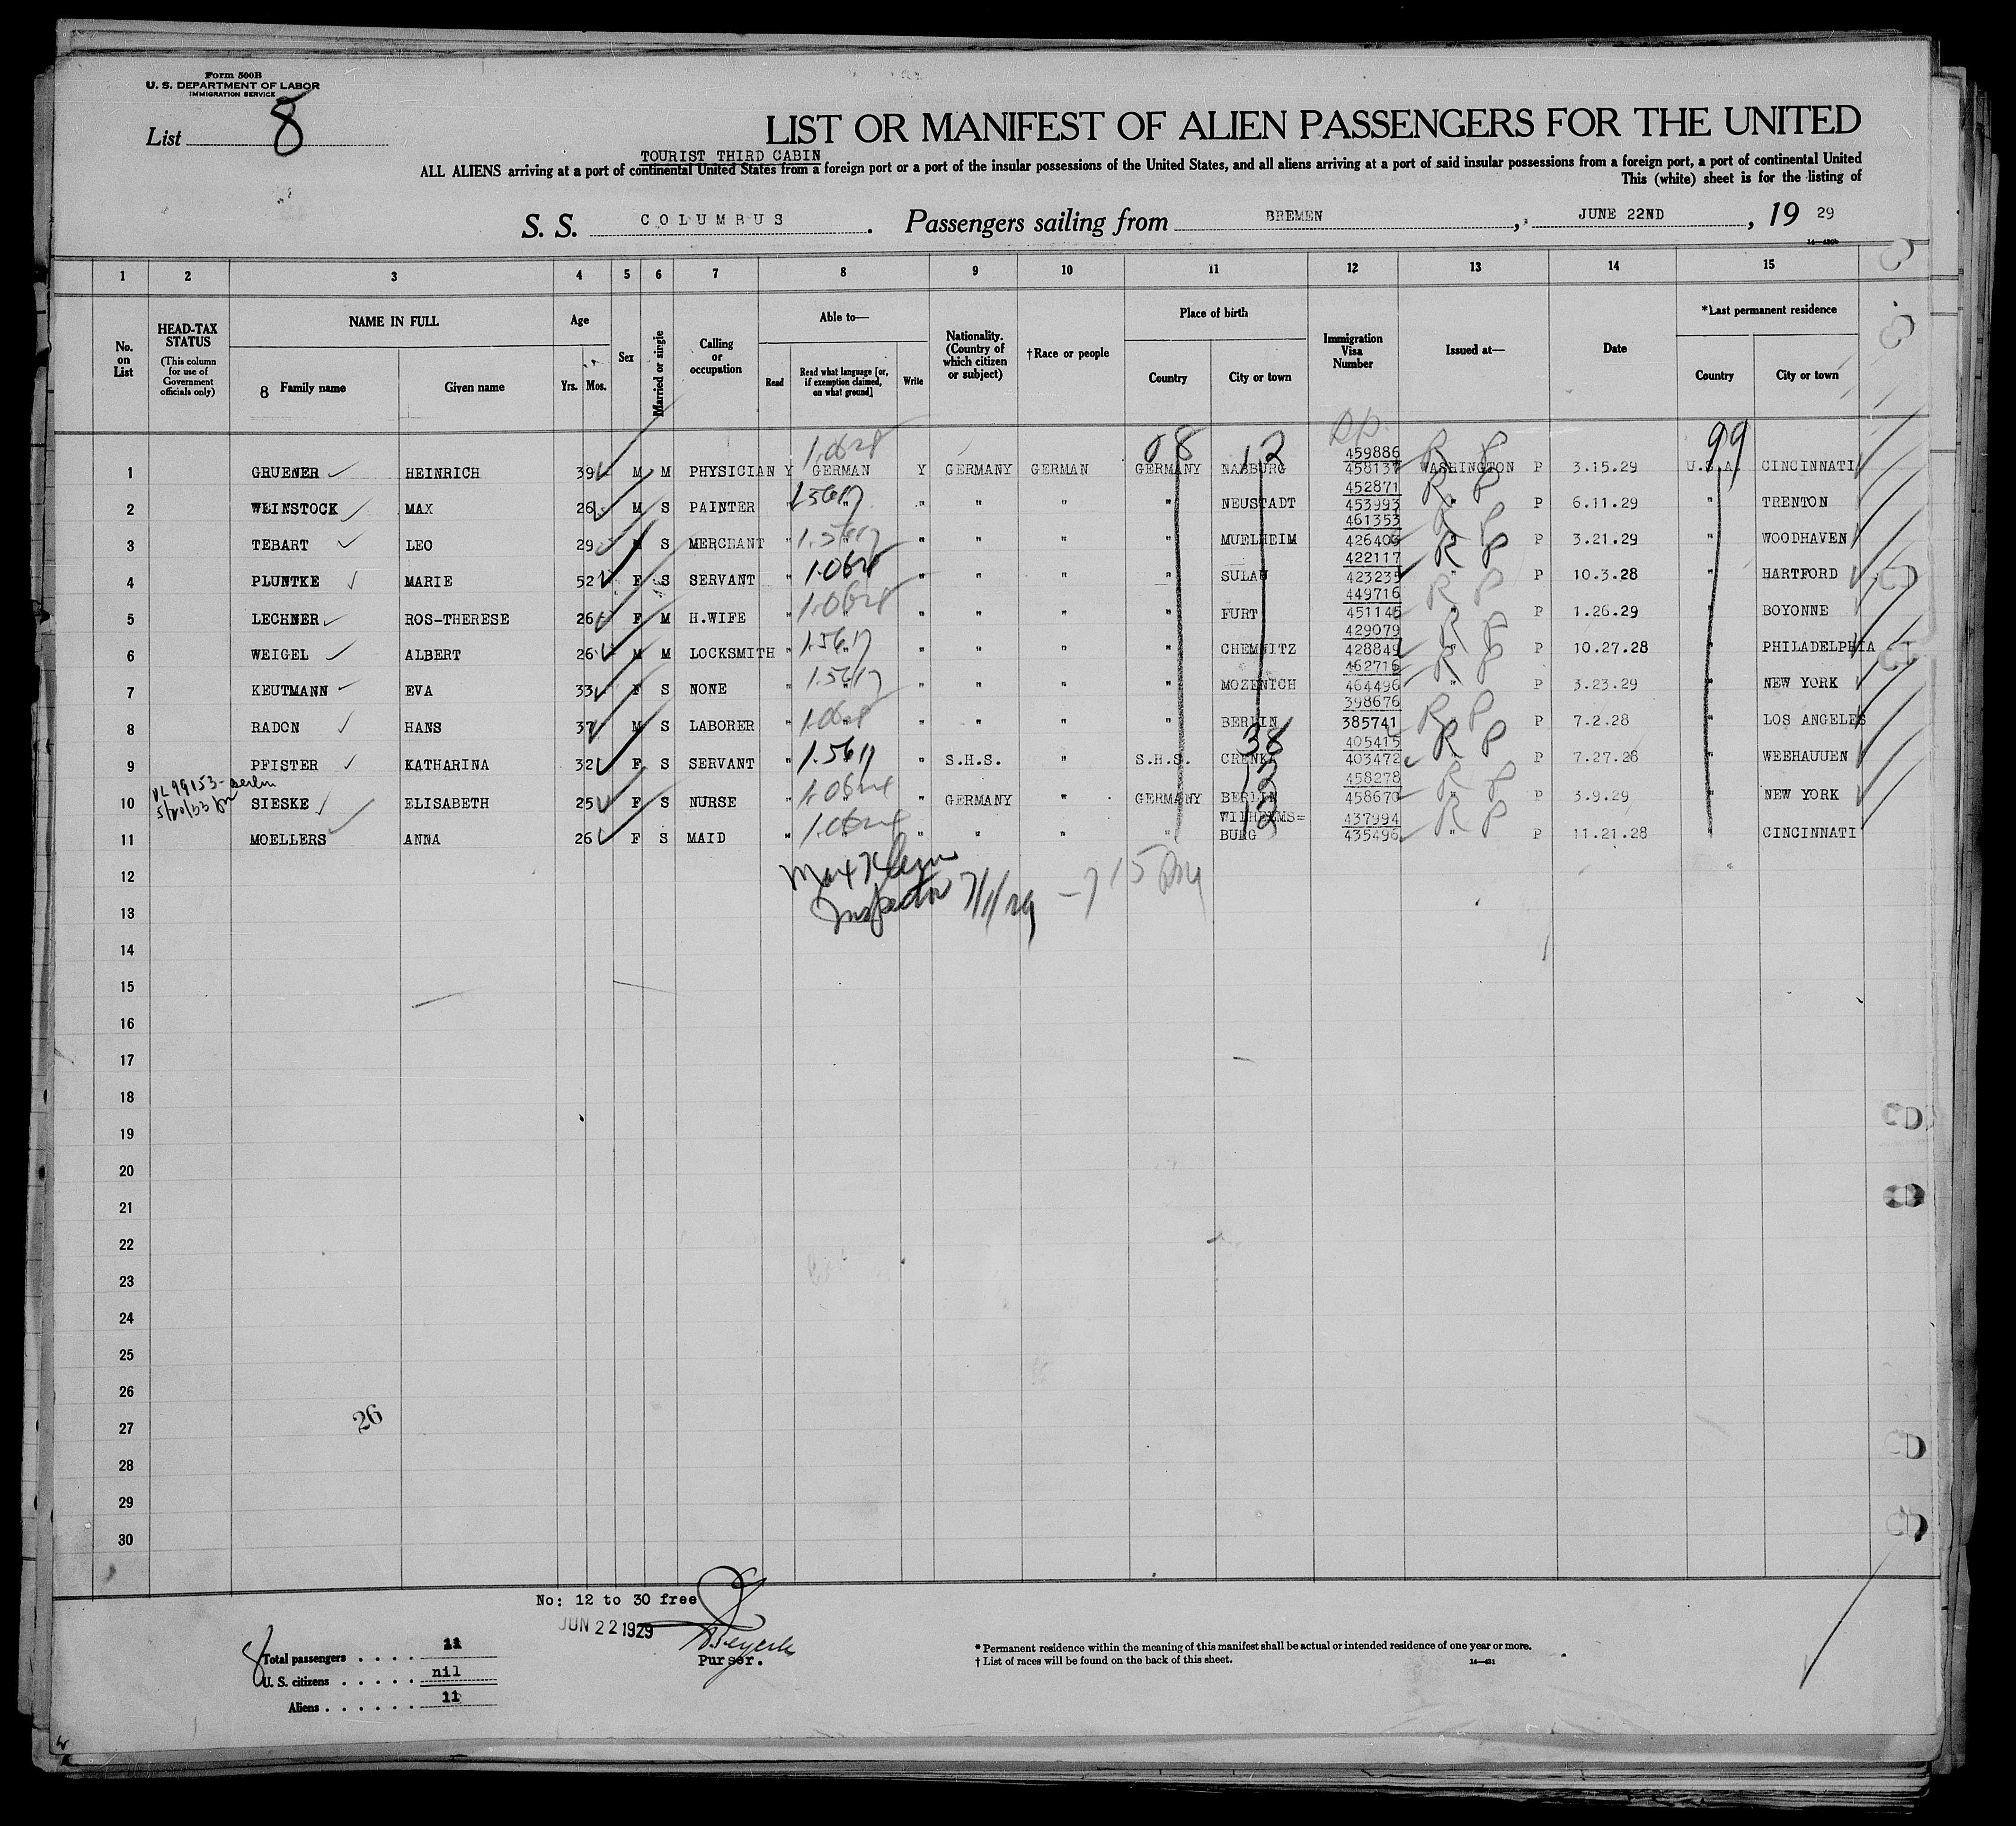 Form 500B
U. S. DEPARTMENT OF LABOR
IMMIGRATION SERVICE
List 8
LIST OR MANIFEST OF ALIEN PASSENGERS FOR THE UNITED
TOURIST THIRD CABIN
ALL ALIENS arriving at a port of continental United States from a foreign port or a port of the insular possessions of the United States, and all aliens arriving at a port of said insular possessions from a foreign port, a port of continental United
This (white) sheet is for the listing of
S. S. COLUMBUS. Passengers sailing from BREMEN, JUNE 22ND, 19 29
14—420b
1 2 3 4 5 6 7 8 9 10 11 12 13 14 15
No. on List
HEAD-TAX STATUS (This column for use of Government officials only)
NAME IN FULL
8 Family name Given name
Age Yrs. Mos.
Sex
Married or single
Calling or occupation
Able to— Read Read what language [or, if exemption claimed, on what ground] Write
Nationality. (Country of which citizen or subject)
†Race or people
Place of birth Country City or town
Immigration Visa Number
Issued at—
Date
*Last permanent residence Country City or town
08 12 99
1.0628
459886
1 GRUENER HEINRICH 39 M M PHYSICIAN Y GERMAN Y GERMANY GERMAN GERMANY NABBURG 458137 WASHINGTON P 3.15.29 U.S.A. CINCINNATI
R P
452871
2 WEINSTOCK MAX 26 M S PAINTER " 1.5617 " " " " NEUSTADT 453993 " P 6.11.29 " TRENTON
R P
461353
3 TEBART LEO 29 M S MERCHANT " 1.5617 " " " " MUELHEIM 426409 " P 3.21.29 " WOODHAVEN
R P
422117
4 PLUNTKE MARIE 52 F S SERVANT " 1.0628 " " " " SULAW 423235 " P 10.3.28 " HARTFORD
R P
449716
5 LECHNER ROS-THERESE 26 F M H.WIFE " 1.0628 " " " " FURT 451145 " P 1.26.29 " BOYONNE
R P
429079
6 WEIGEL ALBERT 26 M M LOCKSMITH " 1.5617 " " " " CHEMNITZ 428849 " P 10.27.28 " PHILADELPHIA
R P
462716
7 KEUTMANN EVA 33 F S NONE " 1.5617 " " " " MOZENICH 464496 " P 3.23.29 " NEW YORK
R P
398676
8 RADON HANS 37 M S LABORER " 1.0628 " " " " BERLIN 385741 " P 7.2.28 " LOS ANGELES
R P
38
405415
9 PFISTER KATHARINA 32 F S SERVANT " 1.5617 " S.H.S. " S.H.S. CRENKA 403472 " P 7.27.28 " WEEHAUUEN
R P
VL 99153-Berlin
5/20/33
12
458278
10 SIESKE ELISABETH 25 F S NURSE " 1.0624 " GERMANY " GERMANY BERLIN 458670 " P 3.9.29 " NEW YORK
R P
12
WILHELMS= 437994
11 MOELLERS ANNA 26 F S MAID " 1.0624 " " " " BURG 435496 " P 11.21.28 " CINCINNATI
R P
12
Max Klein
13
Inspector 7/1/29
14
15
16
17
18
19
20
21
22
23
24
25
26
27
26
28
29
30
No: 12 to 30 free
JUN 22 1929
Purser.
Total passengers . . . . 11
U. S. citizens . . . . . nil
Aliens . . . . . . 11
* Permanent residence within the meaning of this manifest shall be actual or intended residence of one year or more.
† List of races will be found on the back of this sheet.
14—421